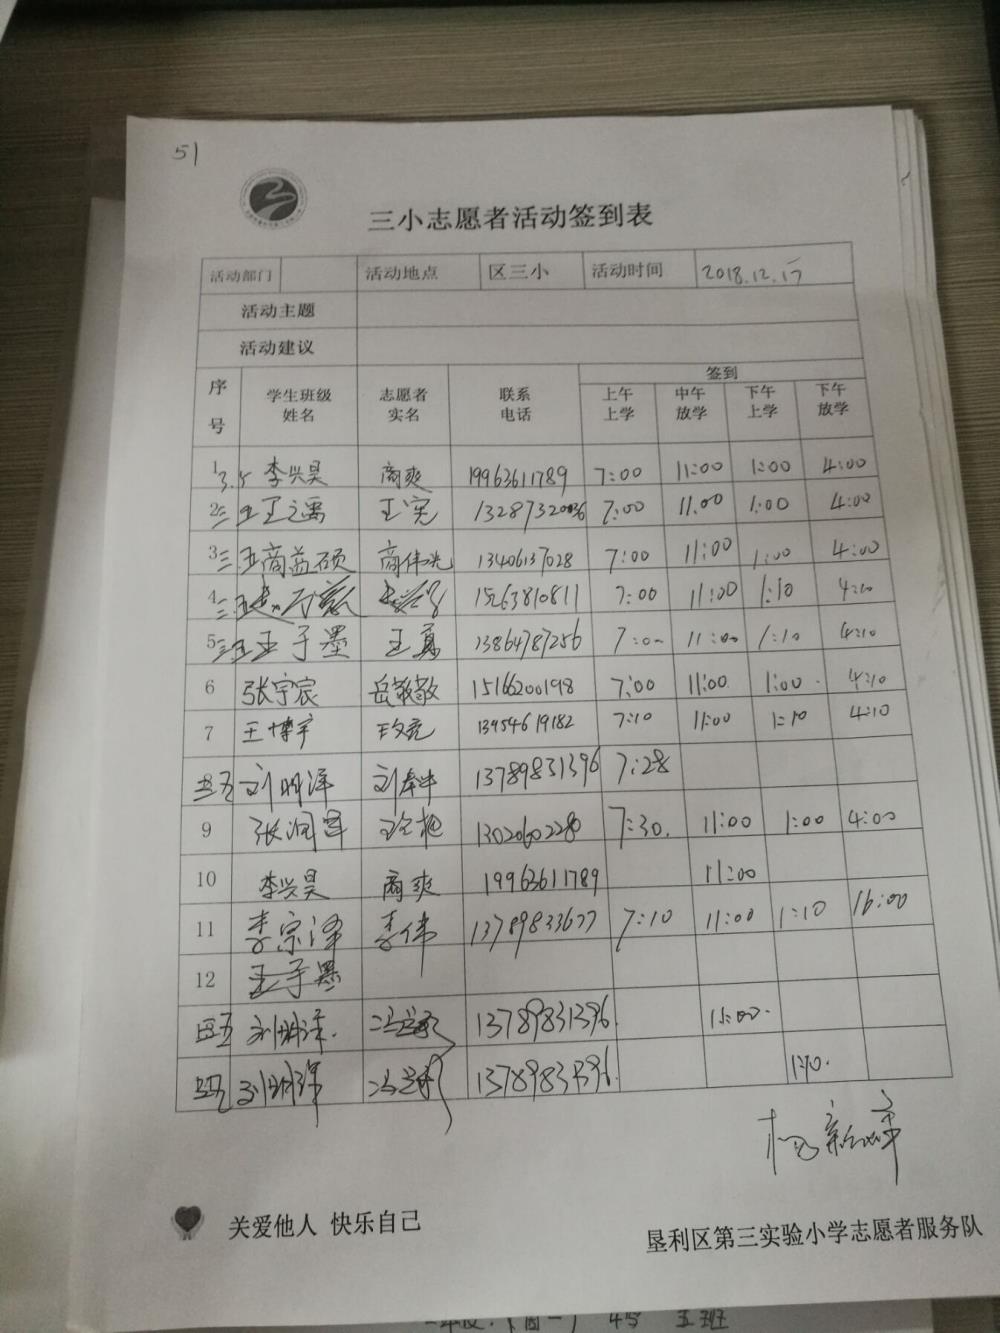 51
三小志愿者活动签到表
活动部门 活动地点 区三小 活动时间 2018.12.17
活动主题
活动建议
序号 学生班级姓名 志愿者实名 联系电话 签到
上午上学 中午放学 下午上学 下午放学
1 3.5 李兴昊 商爽 19963611789 7:00 11:00 1:00 4:00
2 三.五 王 王宪 7:00 11:00 1:00 4:00
3 三五 商益硕 商伟 13406137028 7:00 11:00 1:00 4:00
4 三五 15263810811 7:00 11:00 1:10 4:10
5 三五 王子墨 王真 13864787256 7:00 11:00 1:10 4:10
6 张宇宸 岳敬敬 15166200198 7:00 11:00 1:00 4:10
7 王博宇 13954619182 7:10 11:00 1:10 4:10
三五 刘明泽 刘 13789831396 7:28
9 张润 13020602280 7:30 11:00 1:00 4:00
10 李兴昊 商爽 19963611789 11:00
11 李宗泽 李伟 13789833677 7:10 11:00 1:10 16:00
12 王子墨
三五 刘明泽 13789831396 11:00
三五 刘明泽 13789831396 1:10
关爱他人 快乐自己
垦利区第三实验小学志愿者服务队
五班